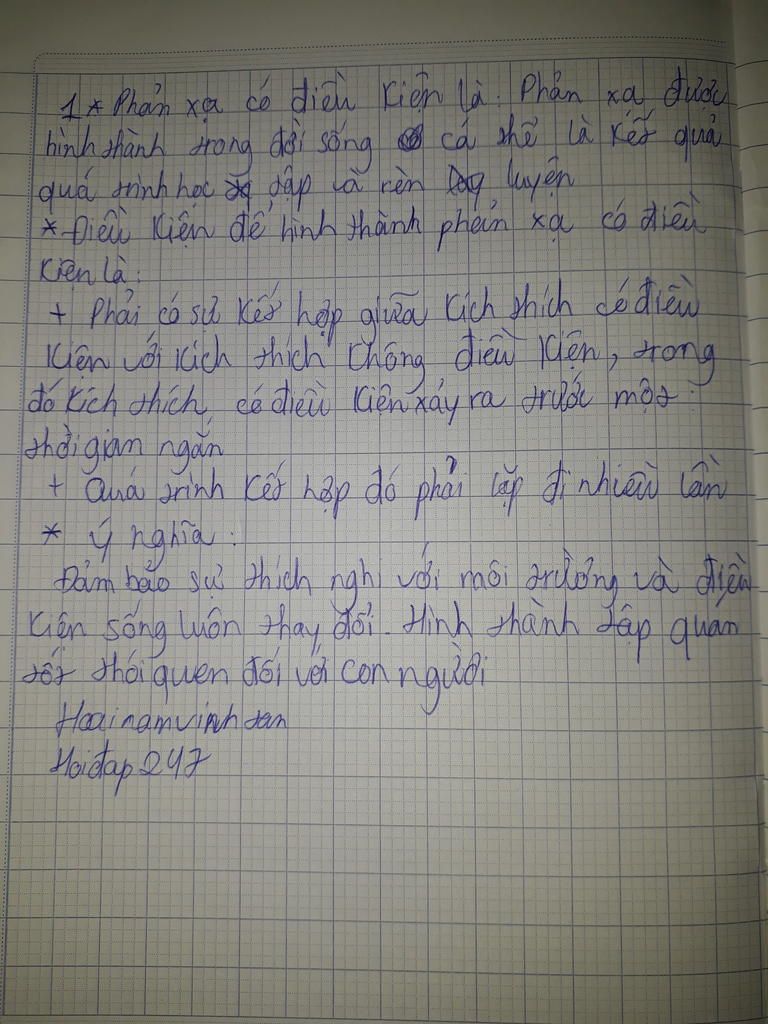 1 * Phản xạ có điều kiện là: Phản xạ được
hình thành trong đời sống cá thể là kết quả
quá trình học tập và rèn luyện
* Điều kiện để hình thành phản xạ có điều
kiện là:
+ Phải có sự kết hợp giữa kích thích có điều
kiện với kích thích không điều kiện, trong
đó kích thích có điều kiện xảy ra trước một
thời gian ngắn
+ Quá trình kết hợp đó phải lặp đi nhiều lần
* Ý nghĩa:
Đảm bảo sự thích nghi với môi trường và điều
kiện sống luôn thay đổi. Hình thành tập quán
tốt thói quen đối với con người
Hoainamvinhtan
Hoiđap247